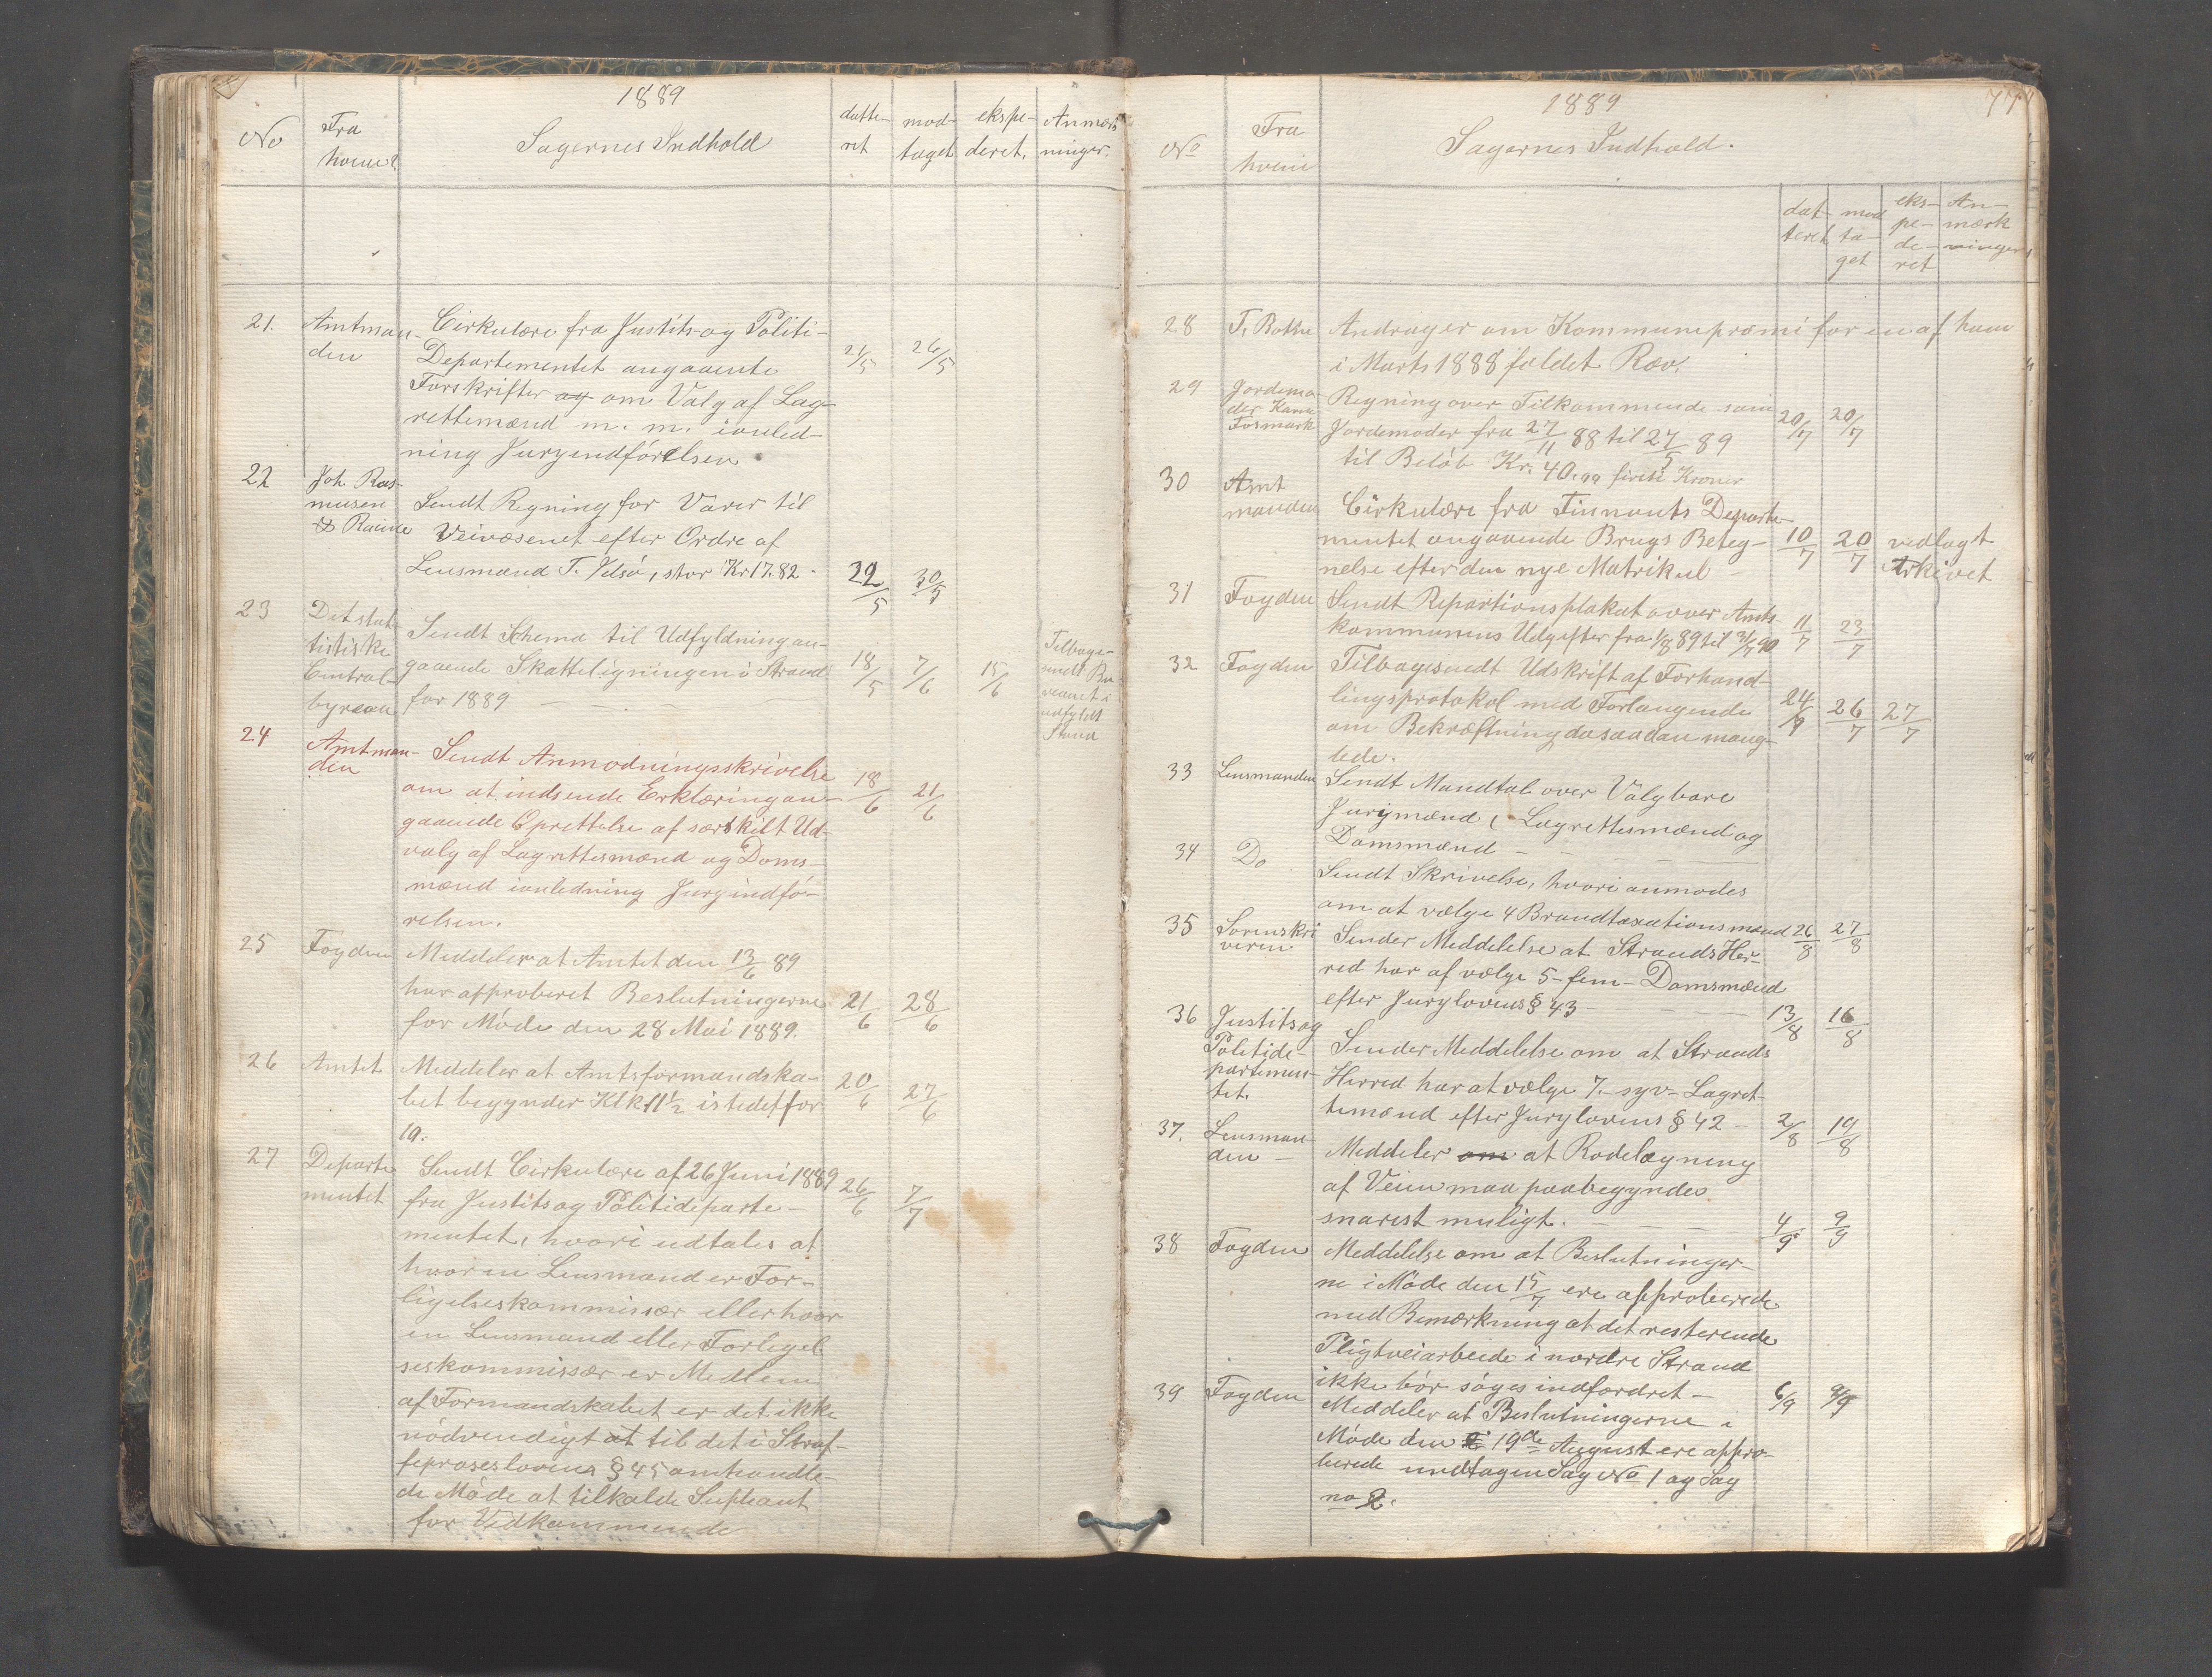 1889
No
Fra
hvem?
Sagernes Indhold
datte-
ret
mod-
taget
ekspe-
deret.
Anmærk
ninger.
21.
Amtman-
den
Cirkulære fra Justits- og Politi-
Departementet angaaente
Forskrifter og om Valg af Lag-
rettemænd m. m. ianled-
ning Juryindförelsen.
21/5
26/5
22
Joh. Ras-
musen
& Racine
Sendt Regning for Varer til
Veivæsenet efter Ordre af
Lensmænd T. Velsö, stor Kr 17.82.
29/5
30/5
23
Det stat-
tistiske
Central-
byreau
Sendt Schema til Udfyldning an-
gaaende Skatteligningen i Strand
for 1889
18/5
7/6
15/6
Tilbage-
sendt Bu-
reauet i
udfyldt
Stand
24
Amtman-
den
Sendt Anmodningsskrivelse
om at indsende Erklæring an-
gaaende Oprettelse af særskilt Ud-
valg af Lagrettesmænd og Doms-
mænd ianledning Juryindfö-
relsen.
18/6
21/6
25
Fogden
Meddeler at Amtet den 13/6 89
har approberet Beslutningerne
for Möde den 28 Mai 1889.
21/6
28/6
26
Amtet
Meddeler at Amtsformandska-
bet begynder Klk 11 1/2 istedetfor
10.
20/6
27/6
27
Departe
mentet
Sendt Cirkulære af 26 Juni 1889
fra Justits og Politideparte-
mentet, hvori udtales at
hvor en Lensmænd er For-
ligelseskommissær eller hvor
en Lensmand eller Forlegel
seskommissær er Medlem
af Formandskabet er det ikke
nödvendigt at til det i Straf-
feproseslovens § 45 omhandle-
de Möde at tilkalde Supleant
for Vedkommende
26/6
7/7
1889
77
No
Fra
hvem
Sagernes Indhold.
dat-
teret
mod
ta-
get
eks-
pe-
de-
ret
An-
mærk
ninger
28
T. Bothne
Andrager om Kommunepræmi for en af ham
i Marts 1888 fældet Ræv.
29
Jordemo-
der Kana
Fosmark
Regning over Tilkommende som
Jordemoder fra 27/11 88 til 27/5 89
til Belöb Kr. 40.00 fireti Kroner
20/7
20/7
30
Amt
manden
Cirkulære fra Finnants Departe-
mentet angaaende Brugs Beteg-
nelse efter den nye Matrikul
10/7
20/7
vedlagt
Arkivet
31
Fogden
Sendt Repartionsplakat over Amts-
kommunens Udgifter fra 1/8 89 til 31/7 90
11/7
23/7
32
Fogden
Tilbagesendt Udskrift af Forhand-
lingsprotokol med Forlangende
om Bekræftning da saadan mang-
lede.
24/7
26/7
27/7
33
Lensmanden
Sendt Mandtal over Valgbare
Jurymænd, Lagrettesmænd og
Domsmænd
34
Do
Sendt Skrivelse, hvori anmodes
om at vælge 4 Brandtaxationsmænd
26/8
27/8
35
Sorenskri
veren
Sender Meddelelse at Strands Her-
red har af vælge 5-fem-Domsmænd
efter Jurylovens § 43
13/8
16/8
36
Justits og
Politide-
partemen-
tet.
Sender Meddelelse om at Strands
Herred har at vælge 7.-syv- Lagret-
temænd efter Jurylovens § 42
2/8
19/8
37.
Lensman-
den
Meddeler om at Rodelægning
af Veien maa paabegyndes
snarest muligt.
4/9
9/9
38
Fogden
Meddelelse om at Beslutninger-
ne i Möde den 15/7 ere approberede
med Bemærkning at det resterende
Pligtveiarbeide i nordre Strand
ikke bör söges indfordret-
6/9
9/9
39
Fogden
Meddeler at Beslutningerne i
Möde den 19de August ere appro-
berede undtagen Sag No 1 og Sag
no 2.